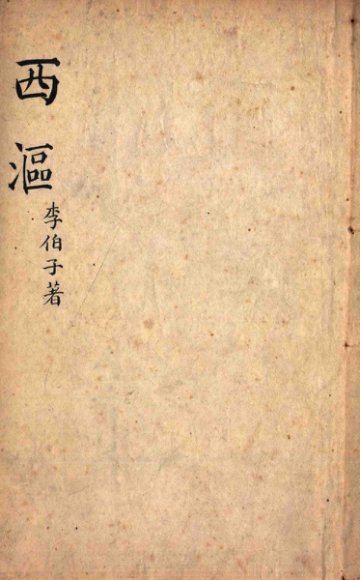 西漚
李伯子著